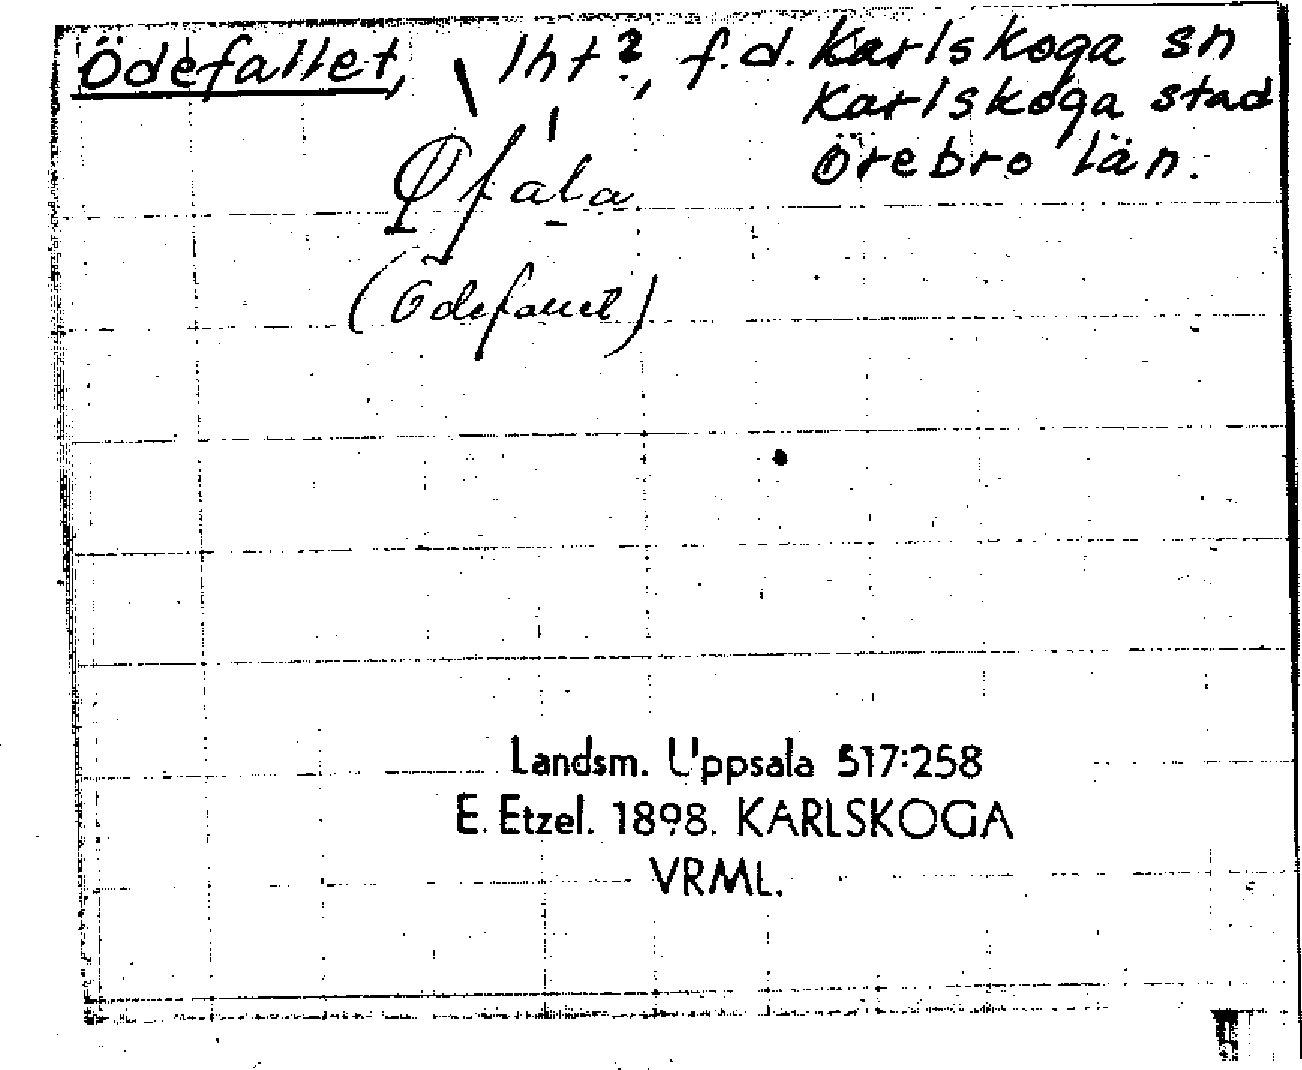 Ödefallet, lht?, f.d. Karlskoga sn
Karlskoga stad
Örebro län.
Øfala
(Ödefallet)
Landsm. Uppsala 517:258
E. Etzel. 1898. KARLSKOGA
VRML.